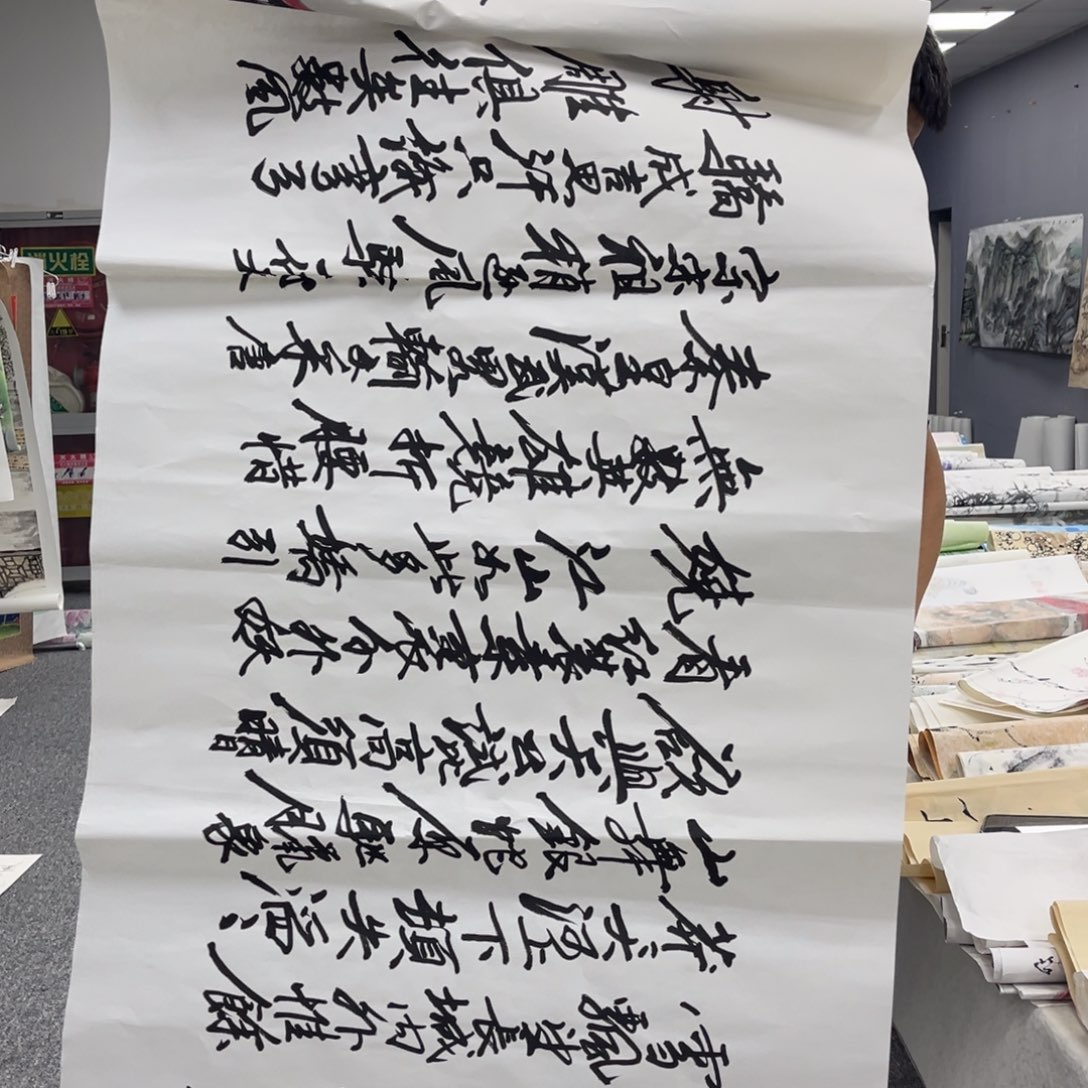 雪飄望長城内外惟餘
莽大河上下頓失滔
山舞銀蛇原馳蠟象
欲與天公試比高須晴
看紅裝素裹分外妖
嬈江山如此多嬌引
無數英雄競折腰惜
秦皇漢武畧輸文采唐
宗宋祖稍遜風騷一代天
驕成吉思汗只識彎弓
射雕俱往矣數風
消火栓